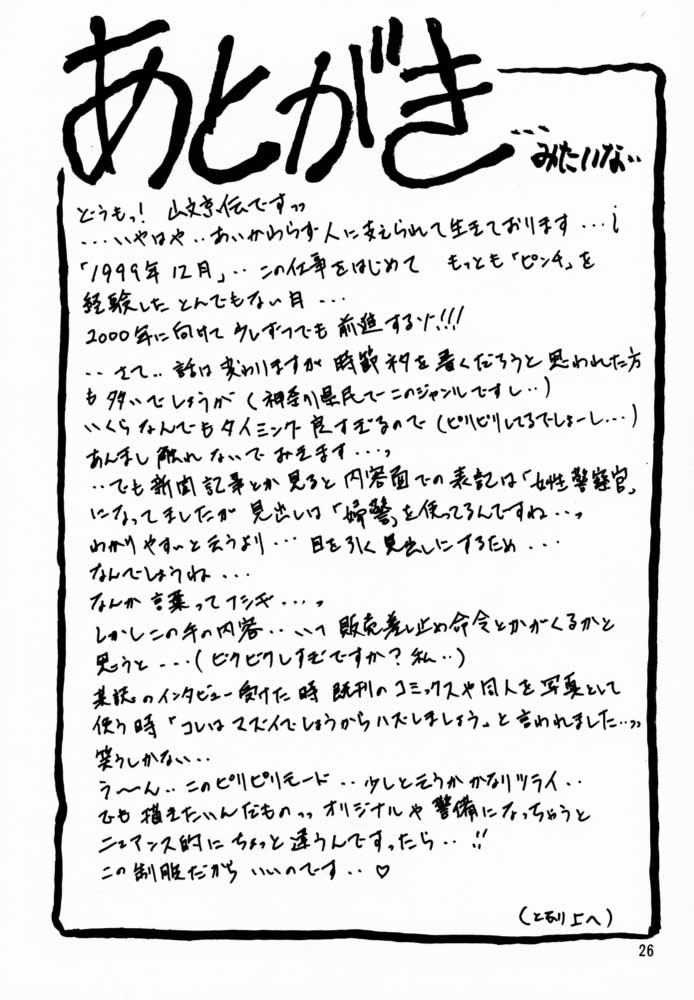 あとがき
…みたいな…
どうもっ! 山文京伝ですっっ
…いやはや‥あいかわらず人に支えられて生きております…
「1999年12月」‥この仕事をはじめて もっとも「ピンチ」を
経験した とんでもない月…
2000年に向けて 少しずつでも 前進するゾ!!!
‥さて‥話は変わりますが 時節ネタを書くだろうと思われた方
も多いでしょうが(神奈川県民で このジャンルですし‥)
いくらなんでもタイミング良すぎるので(ピリピリしてるでしょーし…)
あんまし触れないでおきます…っ
‥でも新聞記事とか見ると 内容面での表記は「女性警察官」
になってましたが 見出しは「婦警」を使ってるんですね…っ
わかりやすいと云うより… 目を引く見出しにするため…
なんでしょうね…
なんか言葉ってフシギ…っ
しかしこの手の内容‥いつ 販売差し止め命令とかがくるかと
思うと…(ビクビクしすぎですか?私‥)
某誌のインタビュー受けた時 既刊のコミックスや同人を写真として
使う時「コレはマズイでしょうからハズしましょう」と言われました…っっ
笑うしかない‥
う〜ん‥このピリピリモード‥少しと云うかかなりツライ‥
でも描きたいんだものっっ オリジナルや警備になっちゃうと
ニュアンス的にちょっと違うんですったら‥!!
この制服だから いいのです‥♡
(となり上へ)
26